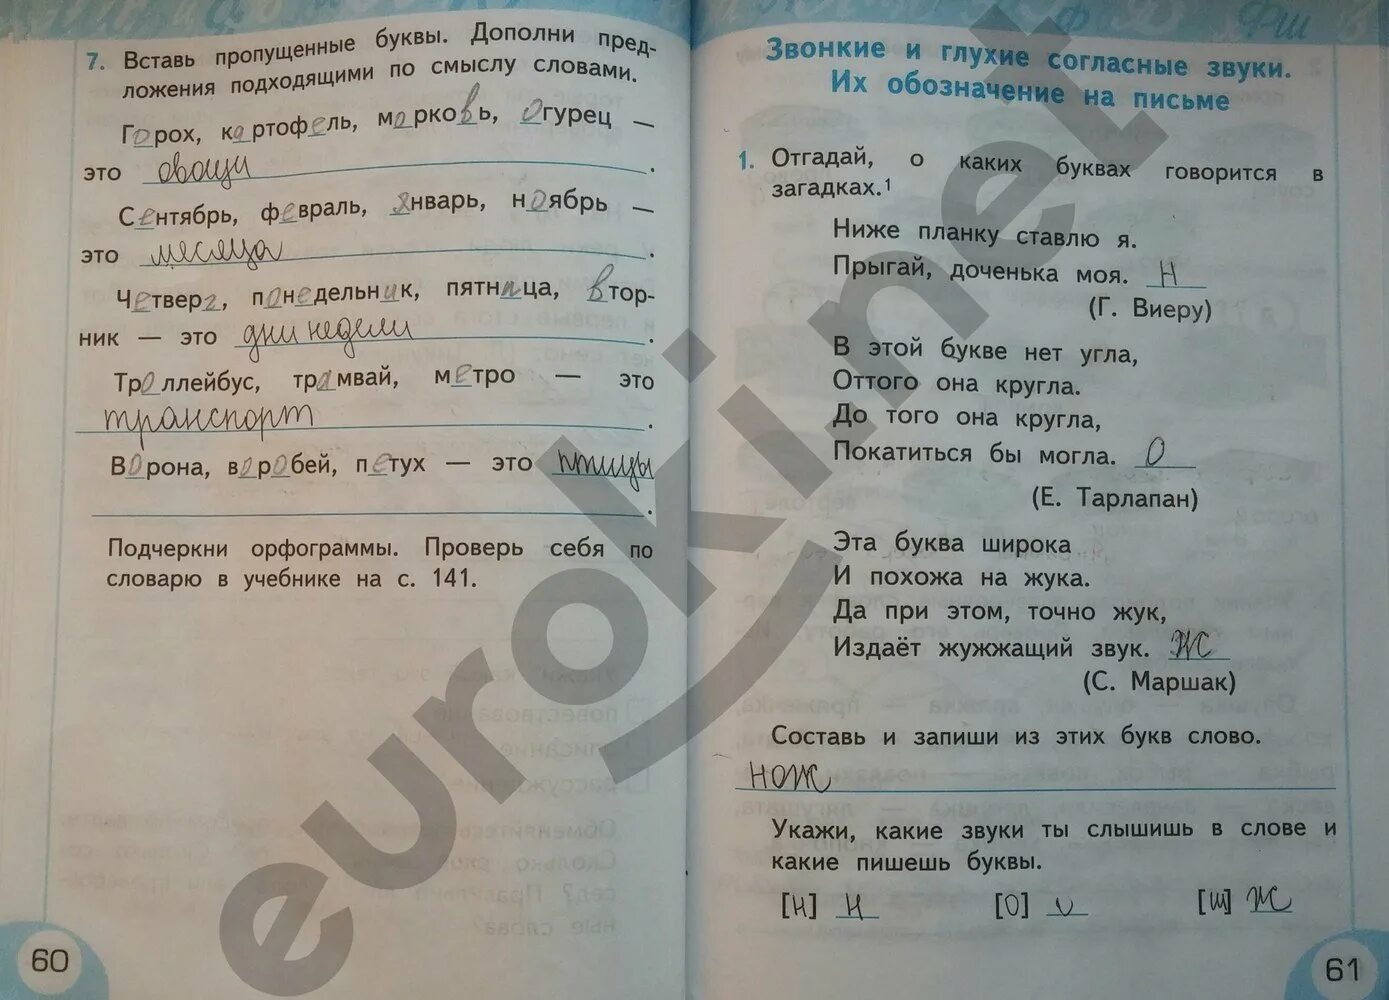 7. Вставь пропущенные буквы. Дополни пред-
ложения подходящими по смыслу словами.
Горох, картофель, морковь, огурец —
это овощи.
Сентябрь, февраль, январь, ноябрь —
это месяца.
Четверг, понедельник, пятница, втор-
ник — это дни недели.
Троллейбус, трамвай, метро — это
транспорт.
Ворона, воробей, петух — это птицы
.
Подчеркни орфограммы. Проверь себя по
словарю в учебнике на с. 141.
60
Звонкие и глухие согласные звуки.
Их обозначение на письме
1. Отгадай, о каких буквах говорится в
загадках.¹
Ниже планку ставлю я.
Прыгай, доченька моя. Н
(Г. Виеру)
В этой букве нет угла,
Оттого она кругла.
До того она кругла,
Покатиться бы могла. О
(Е. Тарлапан)
Эта буква широка
И похожа на жука.
Да при этом, точно жук,
Издаёт жужжащий звук. Ж
(С. Маршак)
Составь и запиши из этих букв слово.
нож
Укажи, какие звуки ты слышишь в слове и
какие пишешь буквы.
[н] н [о] [ш] ж
61
euroki.net